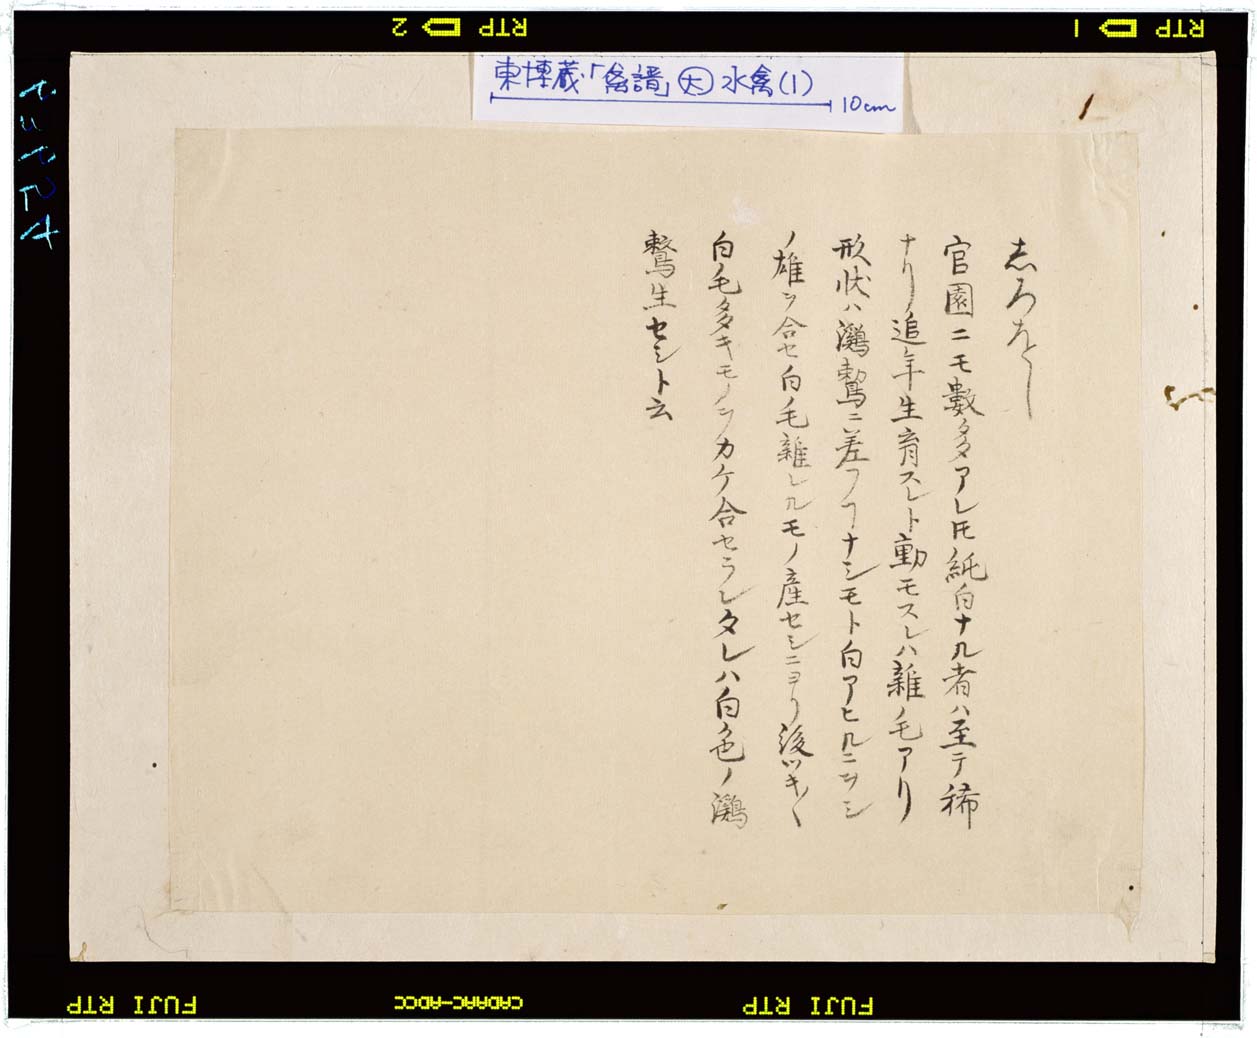 東博蔵「禽譜」大 水禽(1)
10cm
志ろをし
官園ニモ數多アレ𪜈純白ナル者ハ至テ稀
ナリ追年生育スレト動モスレハ雜毛アリ
形状ハ鸂鶒ニ差フヿナシモト白アヒルニヲシ
ノ雄ヲ合セ白毛雜レルモノ産セシニヨリ後ツキ〱
白毛多キモノヲカケ合セラレタレハ白色ノ鸂
鶒生セシト云
RTP 2
RTP 1
FUJI RTP
CADAAC-ADCC
FUJI RTP